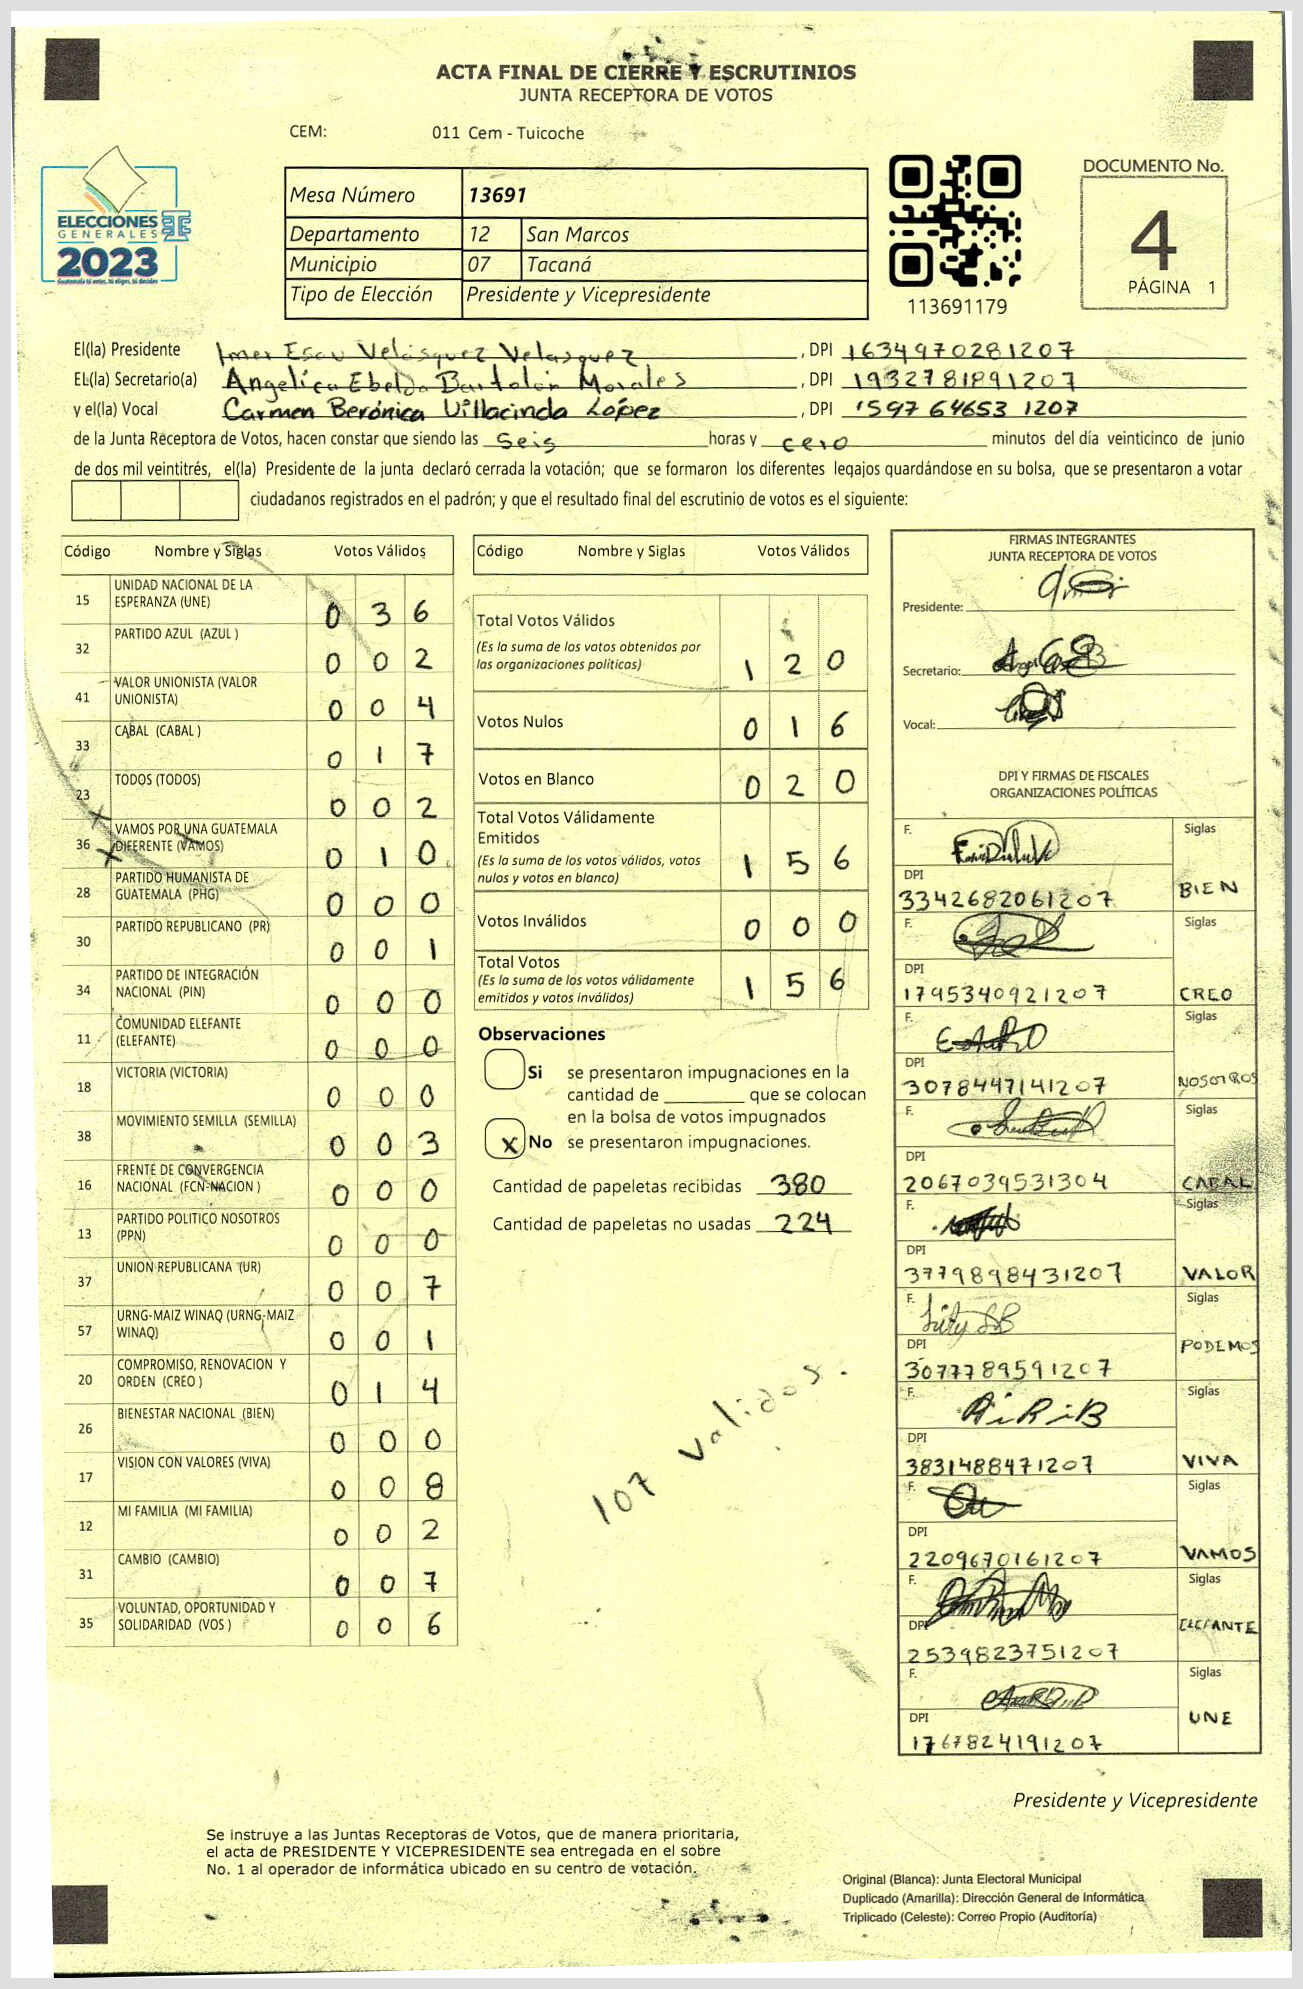 ACTA FINAL DE CIERRE Y ESCRUTINIOS
JUNTA RECEPTORA DE VOTOS
CEM: 011 Cem - Tuicoche
ELECCIONES
GENERALES
2023
Mesa Número 13691
Departamento 12 San Marcos
Municipio 07 Tacaná
Tipo de Elección Presidente y Vicepresidente
113691179
DOCUMENTO No.
4
PÁGINA 1
El(la) Presidente Imer Esau Velásquez Velasquez, DPI 1634970281207
EL(la) Secretario(a) Angelica Ebelda Bartolón Morales, DPI 1932781891207
y el(la) Vocal Carmen Berónica Villacinda López, DPI 1597646531207
de la Junta Receptora de Votos, hacen constar que siendo las Seis horas y cero minutos del día veinticinco de junio
de dos mil veintitrés, el(la) Presidente de la junta declaró cerrada la votación; que se formaron los diferentes legajos quardándose en su bolsa, que se presentaron a votar
ciudadanos registrados en el padrón; y que el resultado final del escrutinio de votos es el siguiente:
Código Nombre y Siglas Votos Válidos
15 UNIDAD NACIONAL DE LA
ESPERANZA (UNE) 0 3 6
32 PARTIDO AZUL (AZUL ) 0 0 2
41 VALOR UNIONISTA (VALOR
UNIONISTA) 0 0 4
33 CABAL (CABAL ) 0 1 7
23 TODOS (TODOS) 0 0 2
36 VAMOS POR UNA GUATEMALA
DIFERENTE (VAMOS) 0 1 0
28 PARTIDO HUMANISTA DE
GUATEMALA (PHG) 0 0 0
30 PARTIDO REPUBLICANO (PR) 0 0 1
34 PARTIDO DE INTEGRACIÓN
NACIONAL (PIN) 0 0 0
11 COMUNIDAD ELEFANTE
(ELEFANTE) 0 0 0
18 VICTORIA (VICTORIA) 0 0 0
38 MOVIMIENTO SEMILLA (SEMILLA) 0 0 3
16 FRENTE DE CONVERGENCIA
NACIONAL (FCN-NACION ) 0 0 0
13 PARTIDO POLITICO NOSOTROS
(PPN) 0 0 0
37 UNION REPUBLICANA (UR) 0 0 7
57 URNG-MAIZ WINAQ (URNG-MAIZ
WINAQ) 0 0 1
20 COMPROMISO, RENOVACION Y
ORDEN (CREO ) 0 1 4
26 BIENESTAR NACIONAL (BIEN) 0 0 0
17 VISION CON VALORES (VIVA) 0 0 8
12 MI FAMILIA (MI FAMILIA) 0 0 2
31 CAMBIO (CAMBIO) 0 0 7
35 VOLUNTAD, OPORTUNIDAD Y
SOLIDARIDAD (VOS ) 0 0 6
Código Nombre y Siglas Votos Válidos
Total Votos Válidos
(Es la suma de los votos obtenidos por
las organizaciones políticas) 1 2 0
Votos Nulos 0 1 6
Votos en Blanco 0 2 0
Total Votos Válidamente
Emitidos
(Es la suma de los votos válidos, votos
nulos y votos en blanco) 1 5 6
Votos Inválidos 0 0 0
Total Votos
(Es la suma de los votos válidamente
emitidos y votos inválidos) 1 5 6
Observaciones
Si se presentaron impugnaciones en la
cantidad de ________ que se colocan
en la bolsa de votos impugnados
X No se presentaron impugnaciones.
Cantidad de papeletas recibidas 380
Cantidad de papeletas no usadas 224
107 validos.
FIRMAS INTEGRANTES
JUNTA RECEPTORA DE VOTOS
Presidente:
Secretario:
Vocal:
DPI Y FIRMAS DE FISCALES
ORGANIZACIONES POLÍTICAS
F. Siglas
DPI
3342682061207 BIEN
F. Siglas
DPI
1795340921207 CREO
F. Siglas
DPI
3078447141207 NOSOTROS
F. Siglas
DPI
2067039531304 CABAL
F. Siglas
DPI
3779898431207 VALOR
F. Siglas
DPI
3077789591207 PODEMOS
F. Siglas
DPI
3831488471207 VIVA
F. Siglas
DPI
2209670161207 VAMOS
F. Siglas
DPI
2539823751207 ELEFANTE
F. Siglas
DPI
1767824191207 UNE
Presidente y Vicepresidente
Se instruye a las Juntas Receptoras de Votos, que de manera prioritaria,
el acta de PRESIDENTE Y VICEPRESIDENTE sea entregada en el sobre
No. 1 al operador de informática ubicado en su centro de votación.
Original (Blanca): Junta Electoral Municipal
Duplicado (Amarilla): Dirección General de Informática
Triplicado (Celeste): Correo Propio (Auditoría)